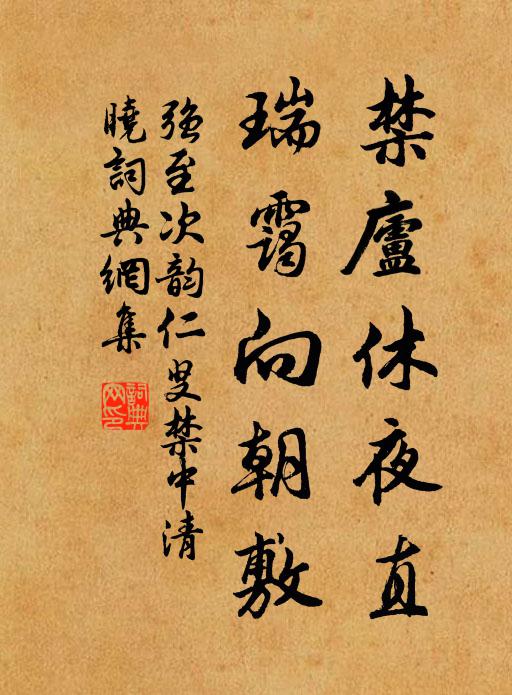 禁廬休夜直
瑞靄向朝敷
强至次韵仁叟禁中清
曉詞典網集
詞典网印